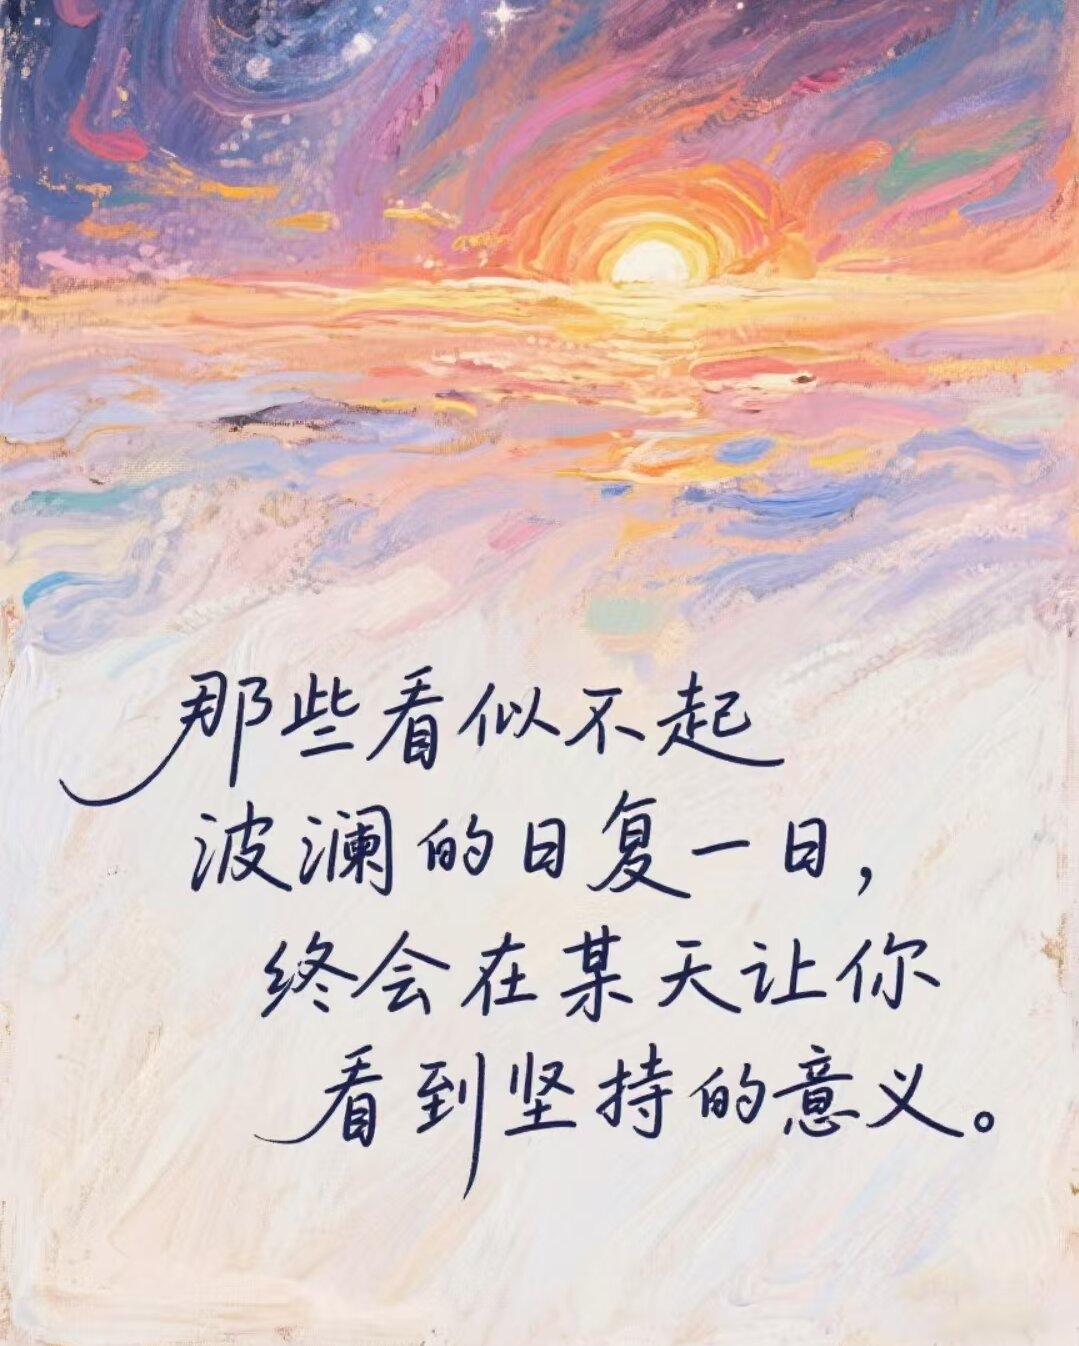 那些看似不起
波澜的日复一日，
终会在某天让你
看到坚持的意义。